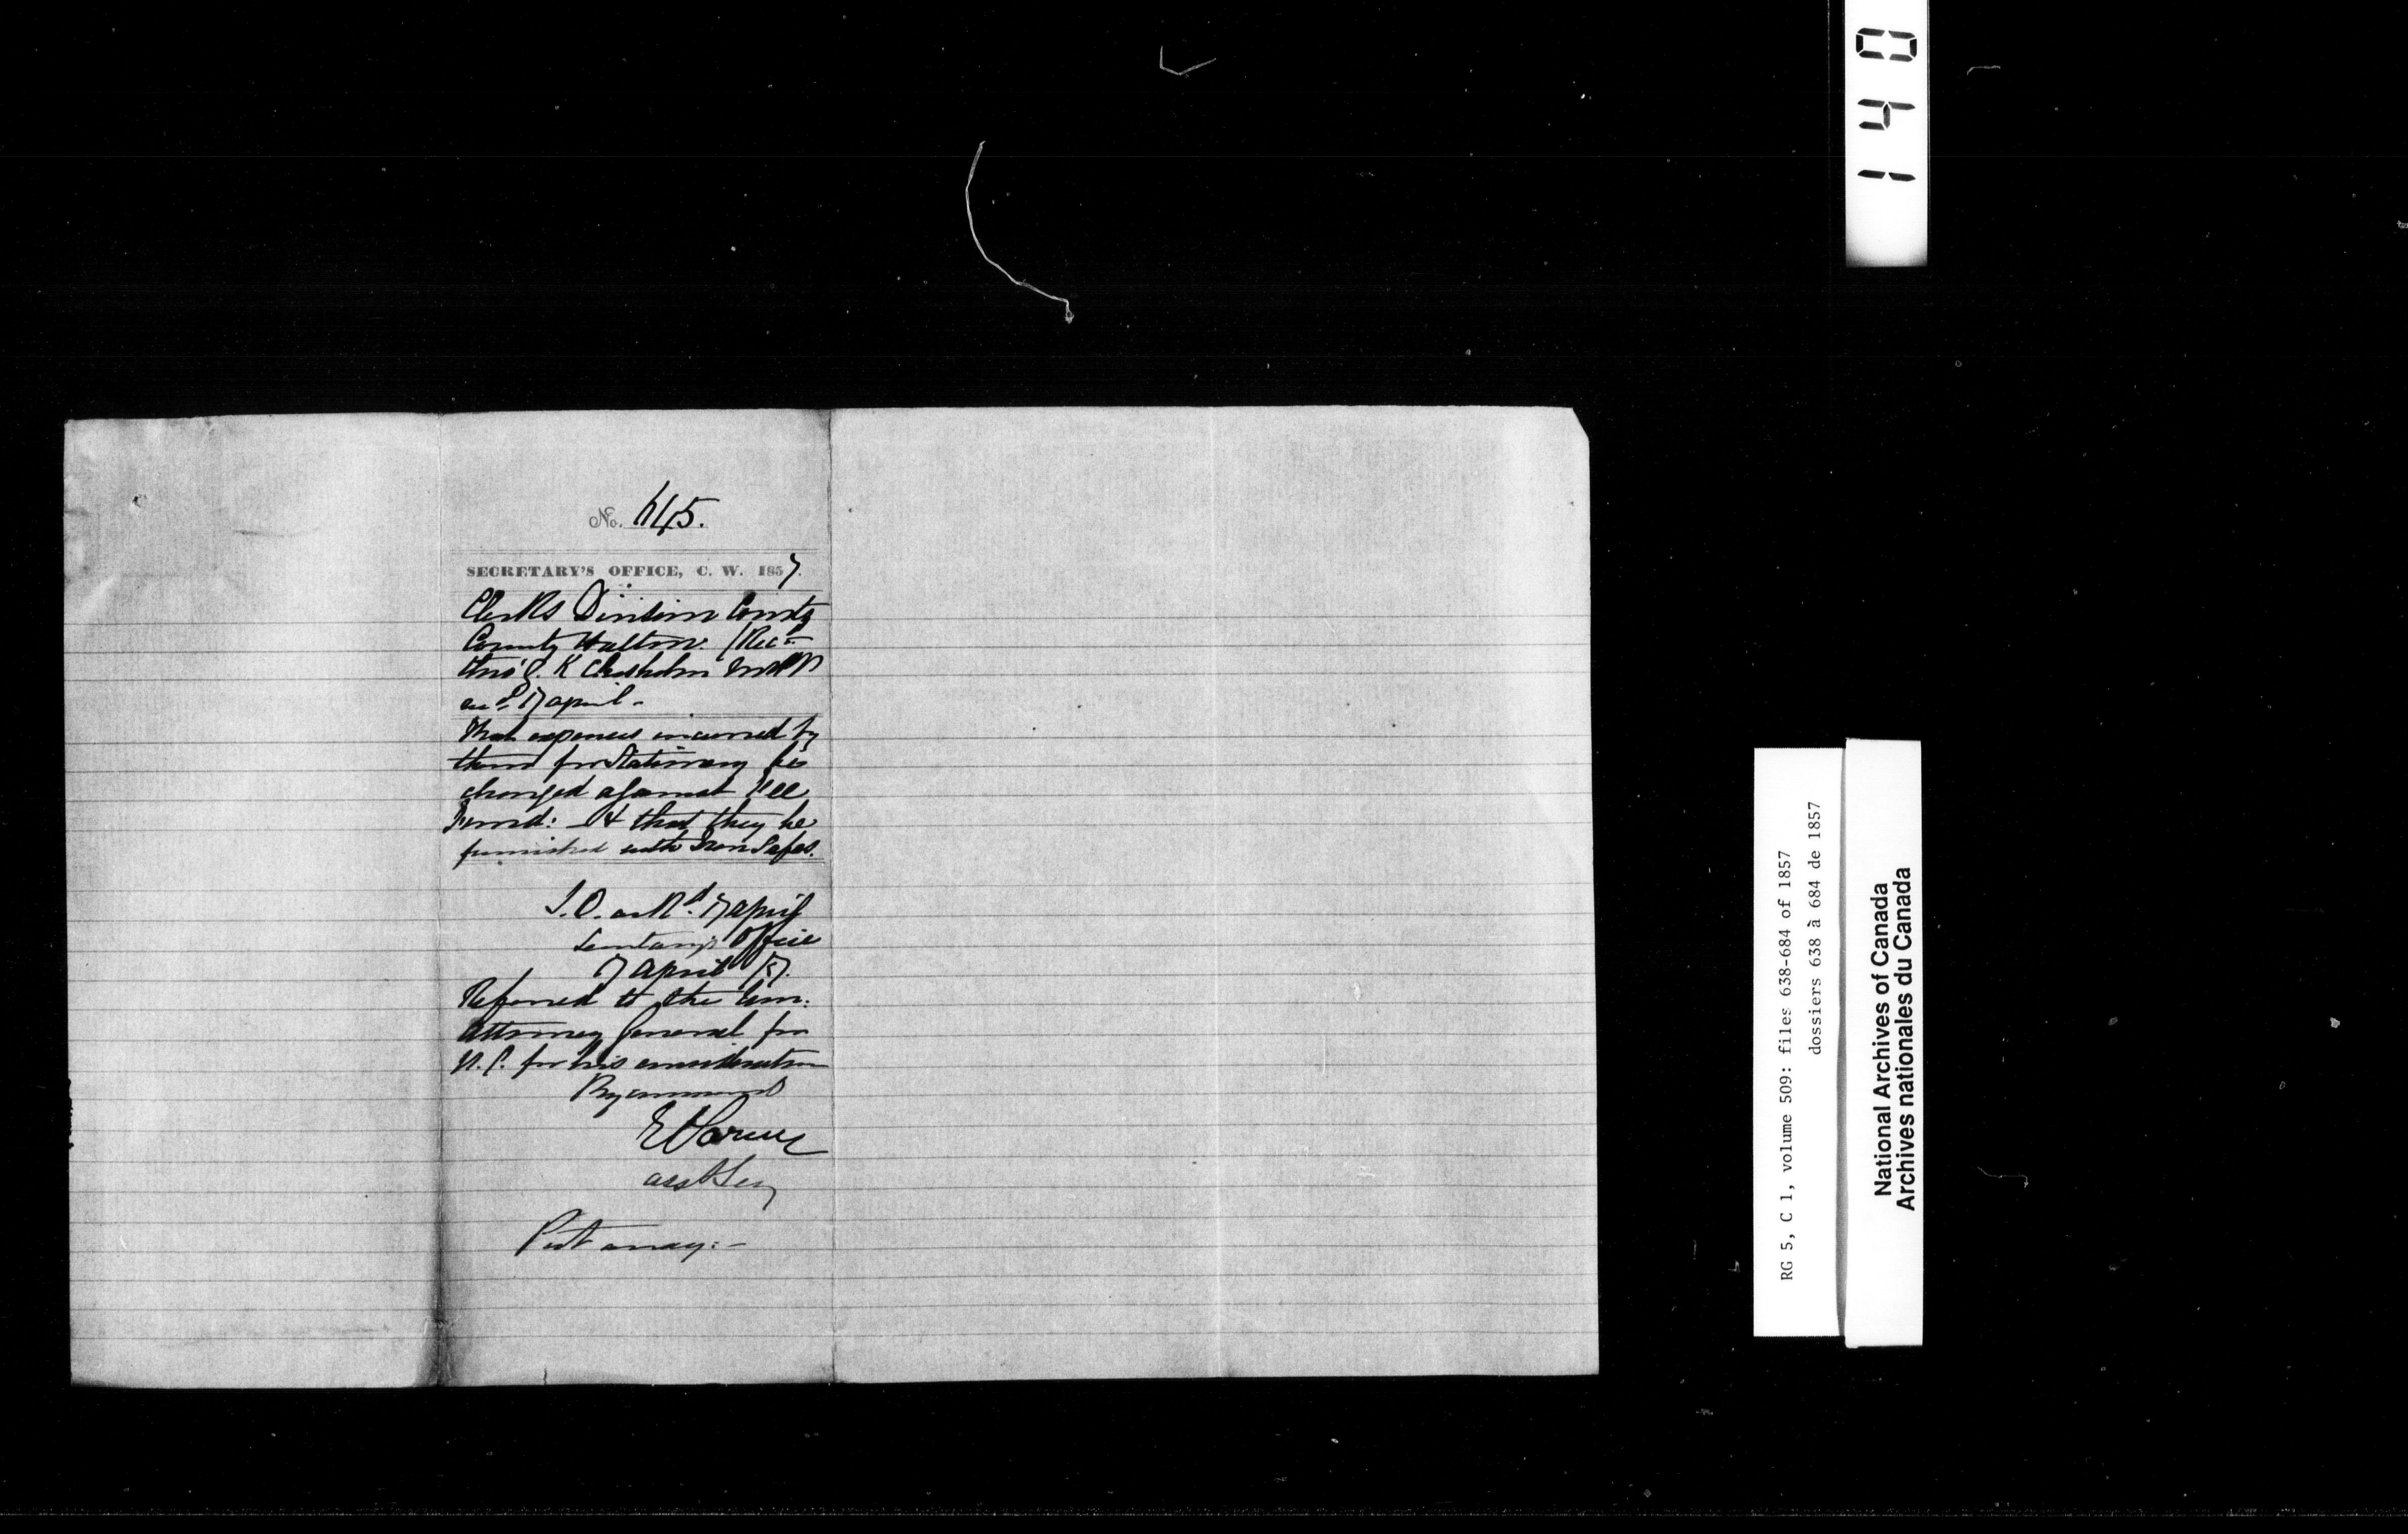 No. 645.
SECRETARY'S OFFICE, C. W. 1857.
Clerks Division Courts
County Halton. (Recd
thro' G. K Chisholm MPP
17 april -
That expenses incurred by
them for Stationery be
charged against Fee
Fund: - & that they be
furnished with Iron Safes.
17 april
Secretary's Office
17 april /57.
Referred to the Hon:
Attorney General for
U. C. for his consideration
By command
E A Parent
asst Secy
Put away: -
1140
RG 5, C 1, volume 509: files 638-684 of 1857
dossiers 638 à 684 de 1857
National Archives of Canada
Archives nationales du Canada